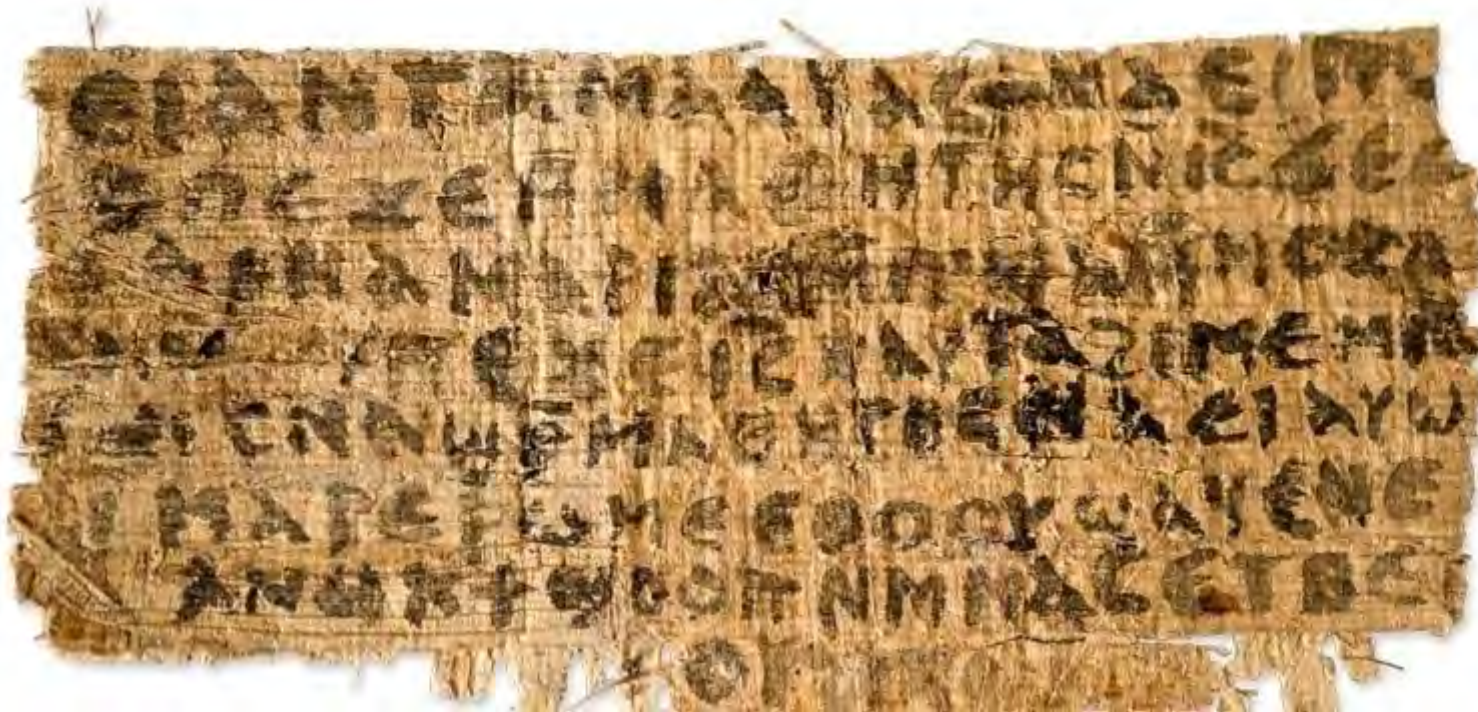 ⲉⲓⲁⲛⲧⲁⲙⲁⲁⲩⲁⲥϯⲛⲁⲉⲓⲡ
ⲡⲉϫⲉⲙ̄ⲙⲁⲑⲏⲧⲏⲥⲛ̄ⲓ̅ⲥ̅ϫⲉⲥ
ⲁⲣⲛⲁⲙⲁⲣⲓⲁⲙⲙ̄ⲡϣⲁⲙ̄ⲙⲟⲥⲁ
ⲡⲉϫⲉⲓ̅ⲥ̅ⲛⲁⲩⲧⲁϩⲓⲙⲉⲙⲛ̄
ⲥⲛⲁϣⲣ̄ⲙⲁⲑⲏⲧⲏⲥⲛⲁⲉⲓⲁⲩⲱ
ⲓⲙⲁⲣⲉⲣⲱⲙⲉⲉⲑⲟⲟⲩϣⲁϥⲉⲛⲉ
ⲁⲛⲟⲕϯϣⲟⲟⲡⲛⲙ̄ⲙⲁⲥⲉⲧⲃⲉ